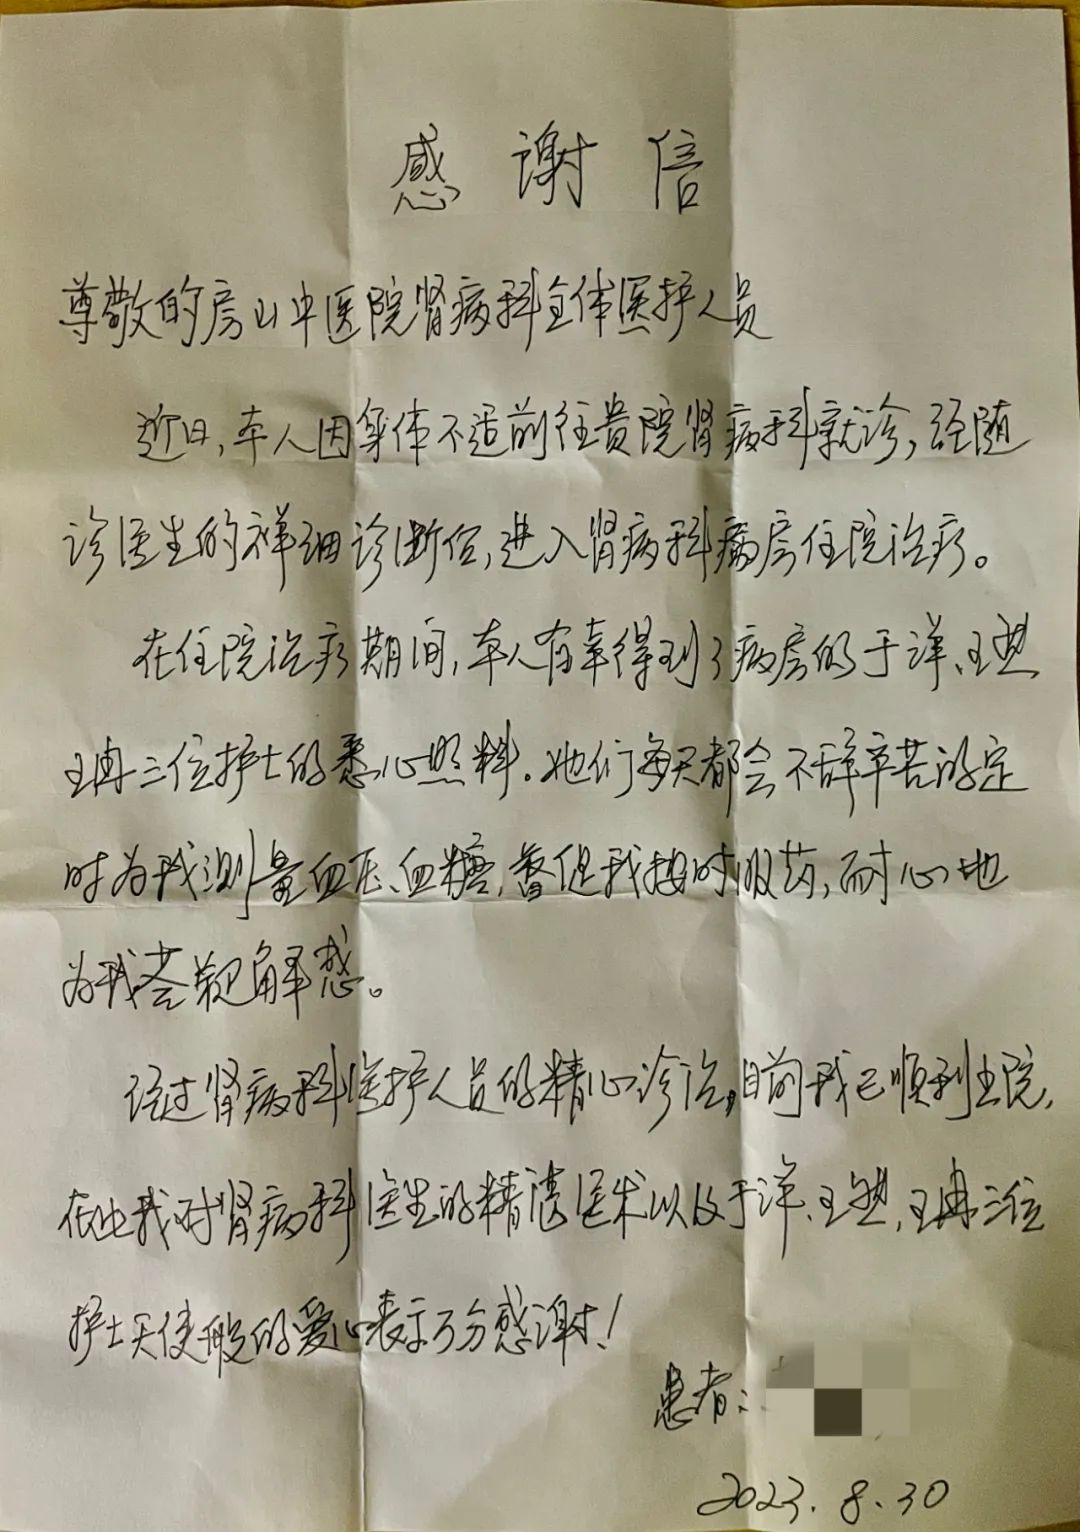 感谢信
尊敬的房山中医院肾病科全体医护人员
近日,本人因身体不适前往贵院肾病科就诊,经随
诊医生的详细诊断后,进入肾病科病房住院治疗。
在住院治疗期间,本人有幸得到了病房的于洋、王
王冉三位护士的悉心照料。她们每天都会不辞辛苦的定
时为我测量血压、血糖,督促我按时服药,耐心地
为我答疑解惑。
经过肾病科医护人员的精心诊治,目前我已顺利出院,
在此我对肾病科医生的精湛医术以及于洋、王、王冉三位
护士天使般的爱心表示万分感谢!
患者:
2023.8.30